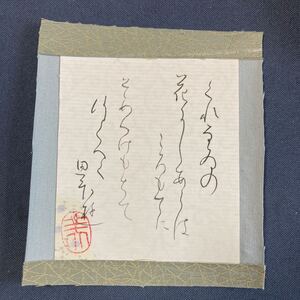 くれなゐの
花にしあらは
ころもてに
そめつけもちて
ゆくへく
思ほゆ